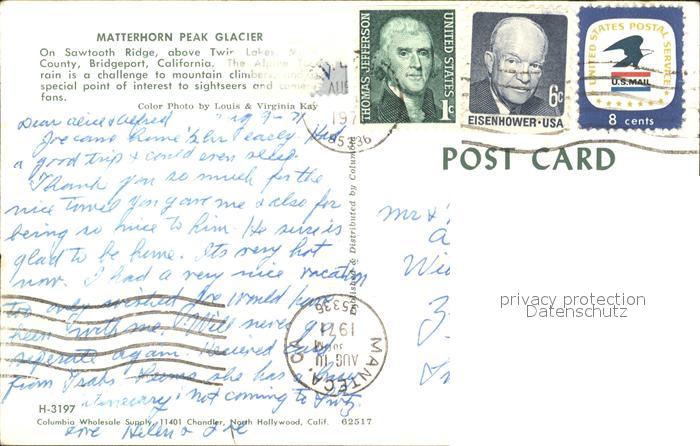 MATTERHORN PEAK GLACIER
On Sawtooth Ridge, above Twin Lakes,
County, Bridgeport, California. The Alpine
rain is a challenge to mountain climbers, and
special point of interest to sightseers and
fans.
Color Photo by Louis & Virginia Kay
Dear Alice & Alfred Aug 9-71
Joe came home ½ hr early. Had
a good trip & could even sleep.
Thank you so much for the
nice towel you gave me & also for
being so nice to him. He sure is
glad to be home. Its very hot
now. I had a very nice vacation
too only wished Joe would have
been with me. Will never go
seperate again. Received
from she has a
itinerary not coming to
Love Helen & Joe
H-3197
Columbia Wholesale Supply, 11401 Chandler, North Hollywood, Calif. 62517
Published & Distributed by Columbia
THOMAS JEFFERSON
UNITED STATES
1c
6c
EISENHOWER·USA
UNITED STATES POSTAL SERVICE
U.S. MAIL
8 cents
95336
MANTECA,
AUG 10
PM
1971
95336
POST CARD
Mr &
privacy protection
Datenschutz